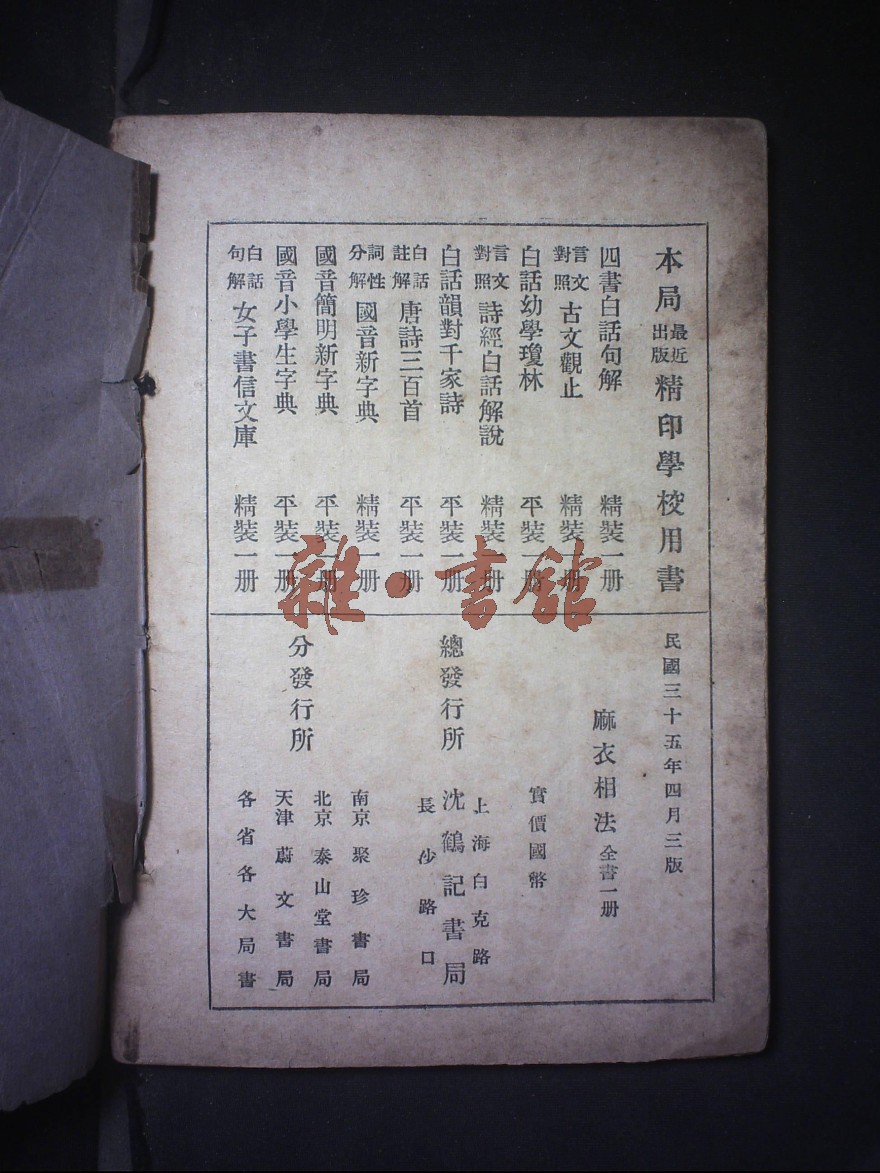 本局最近出版精印學校用書
四書白話句解 精裝一册
言文對照古文觀止 精裝一册
白話幼學瓊林 平裝一册
言文對照詩經白話解說 精裝一册
白話韻對千家詩 平裝一册
白話註解唐詩三百首 平裝一册
詞性分解國音新字典 精裝一册
國音簡明新字典 平裝一册
國音小學生字典 平裝一册
白話句解女子書信文庫 精裝一册
民國三十五年四月三版
麻衣相法全書一册
實價國幣
總發行所
上海白克路
沈鶴記書局
長沙路口
分發行所
南京聚珍書局
北京泰山堂書局
天津蔚文書局
各省各大局書
雜·書館